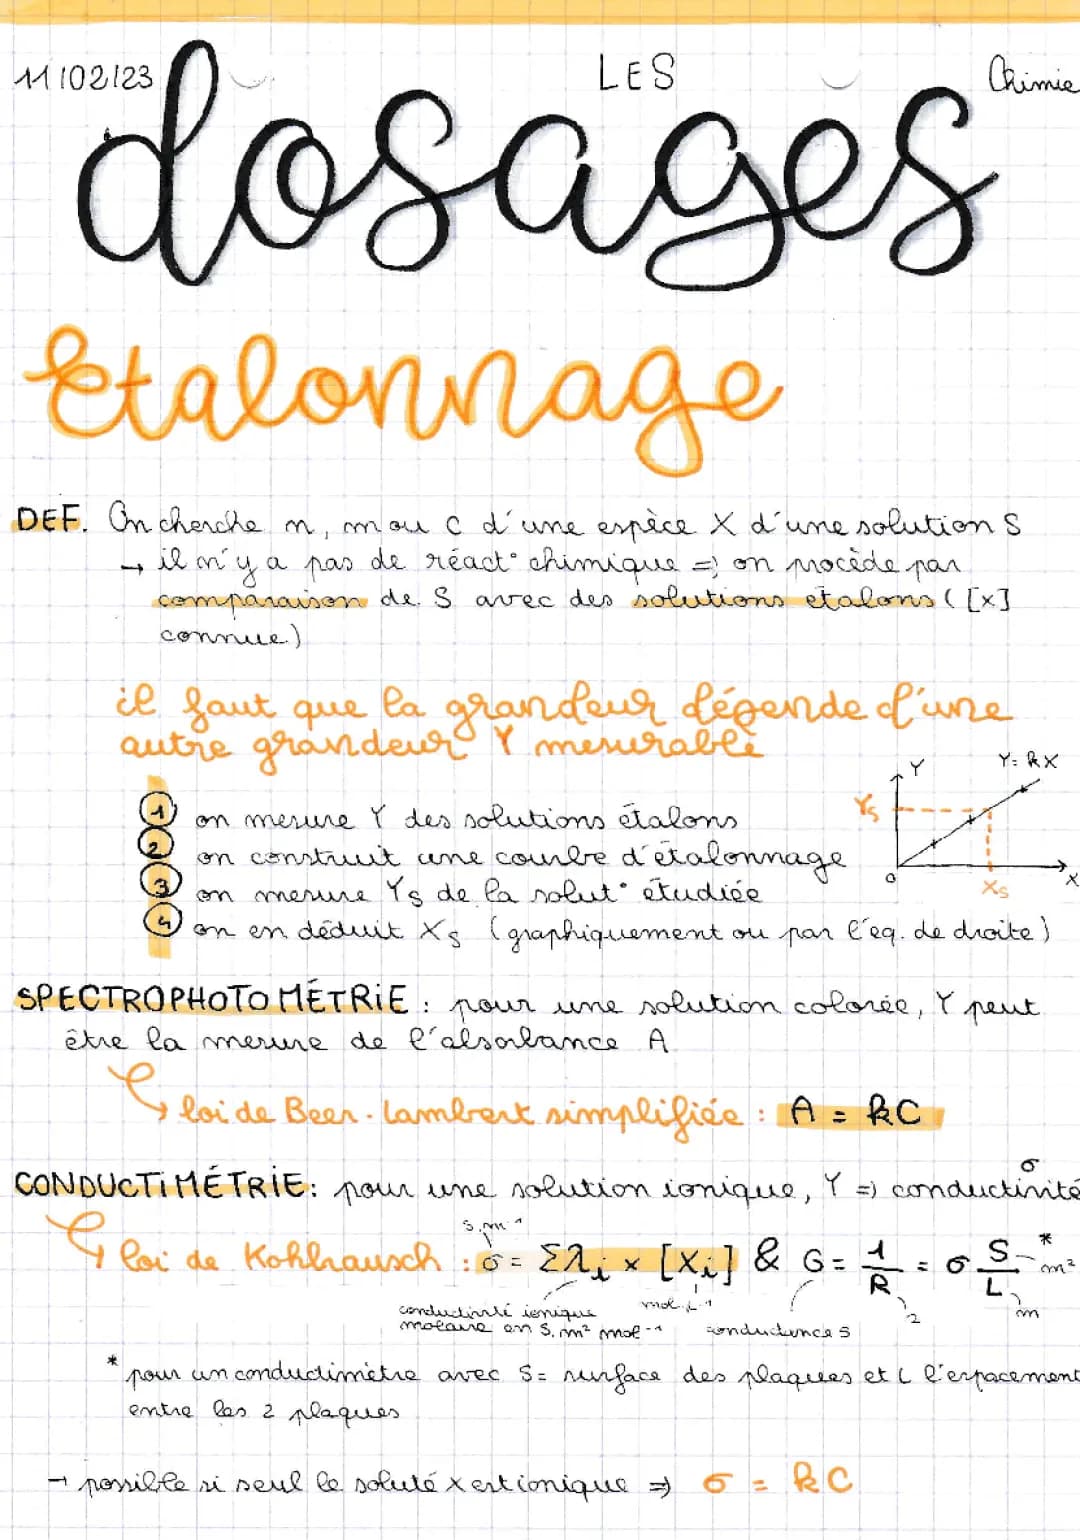 11/02/23
LES
Chimie
dosages
Etalonnage
DEF. On cherche n, m ou C d'une espèce X d'une solution S
→ il n'y a pas de réact° chimique => on procède par
comparaison de S avec des solutions étalons ([X]
connue)
il faut que la grandeur dépende d'une
autre grandeur Y mesurable
Y
Y = kX
Ys
0
Xs
X
1 on mesure Y des solutions étalons
2 on construit une courbe d'étalonnage
3 on mesure Ys de la solut° étudiée
4 on en déduit Xs (graphiquement ou par l'éq. de droite)
SPECTROPHOTOMÉTRIE : pour une solution colorée, Y peut
être la mesure de l'absorbance A
loi de Beer-Lambert simplifiée : A = kC
σ
CONDUCTIMÉTRIE : pour une solution ionique, Y => conductivité
S.m⁻¹
loi de Kohlrausch : σ = Σλi × [Xi] & G = 1/R = σ S/L * m²
conductivité ionique
molaire en S.m² mol⁻¹
mol.L⁻¹
conductance S
Ω
m
* pour un conductimètre avec S = surface des plaques et L l'espacement
entre les 2 plaques
→ possible si seul le soluté X est ionique => σ = kC